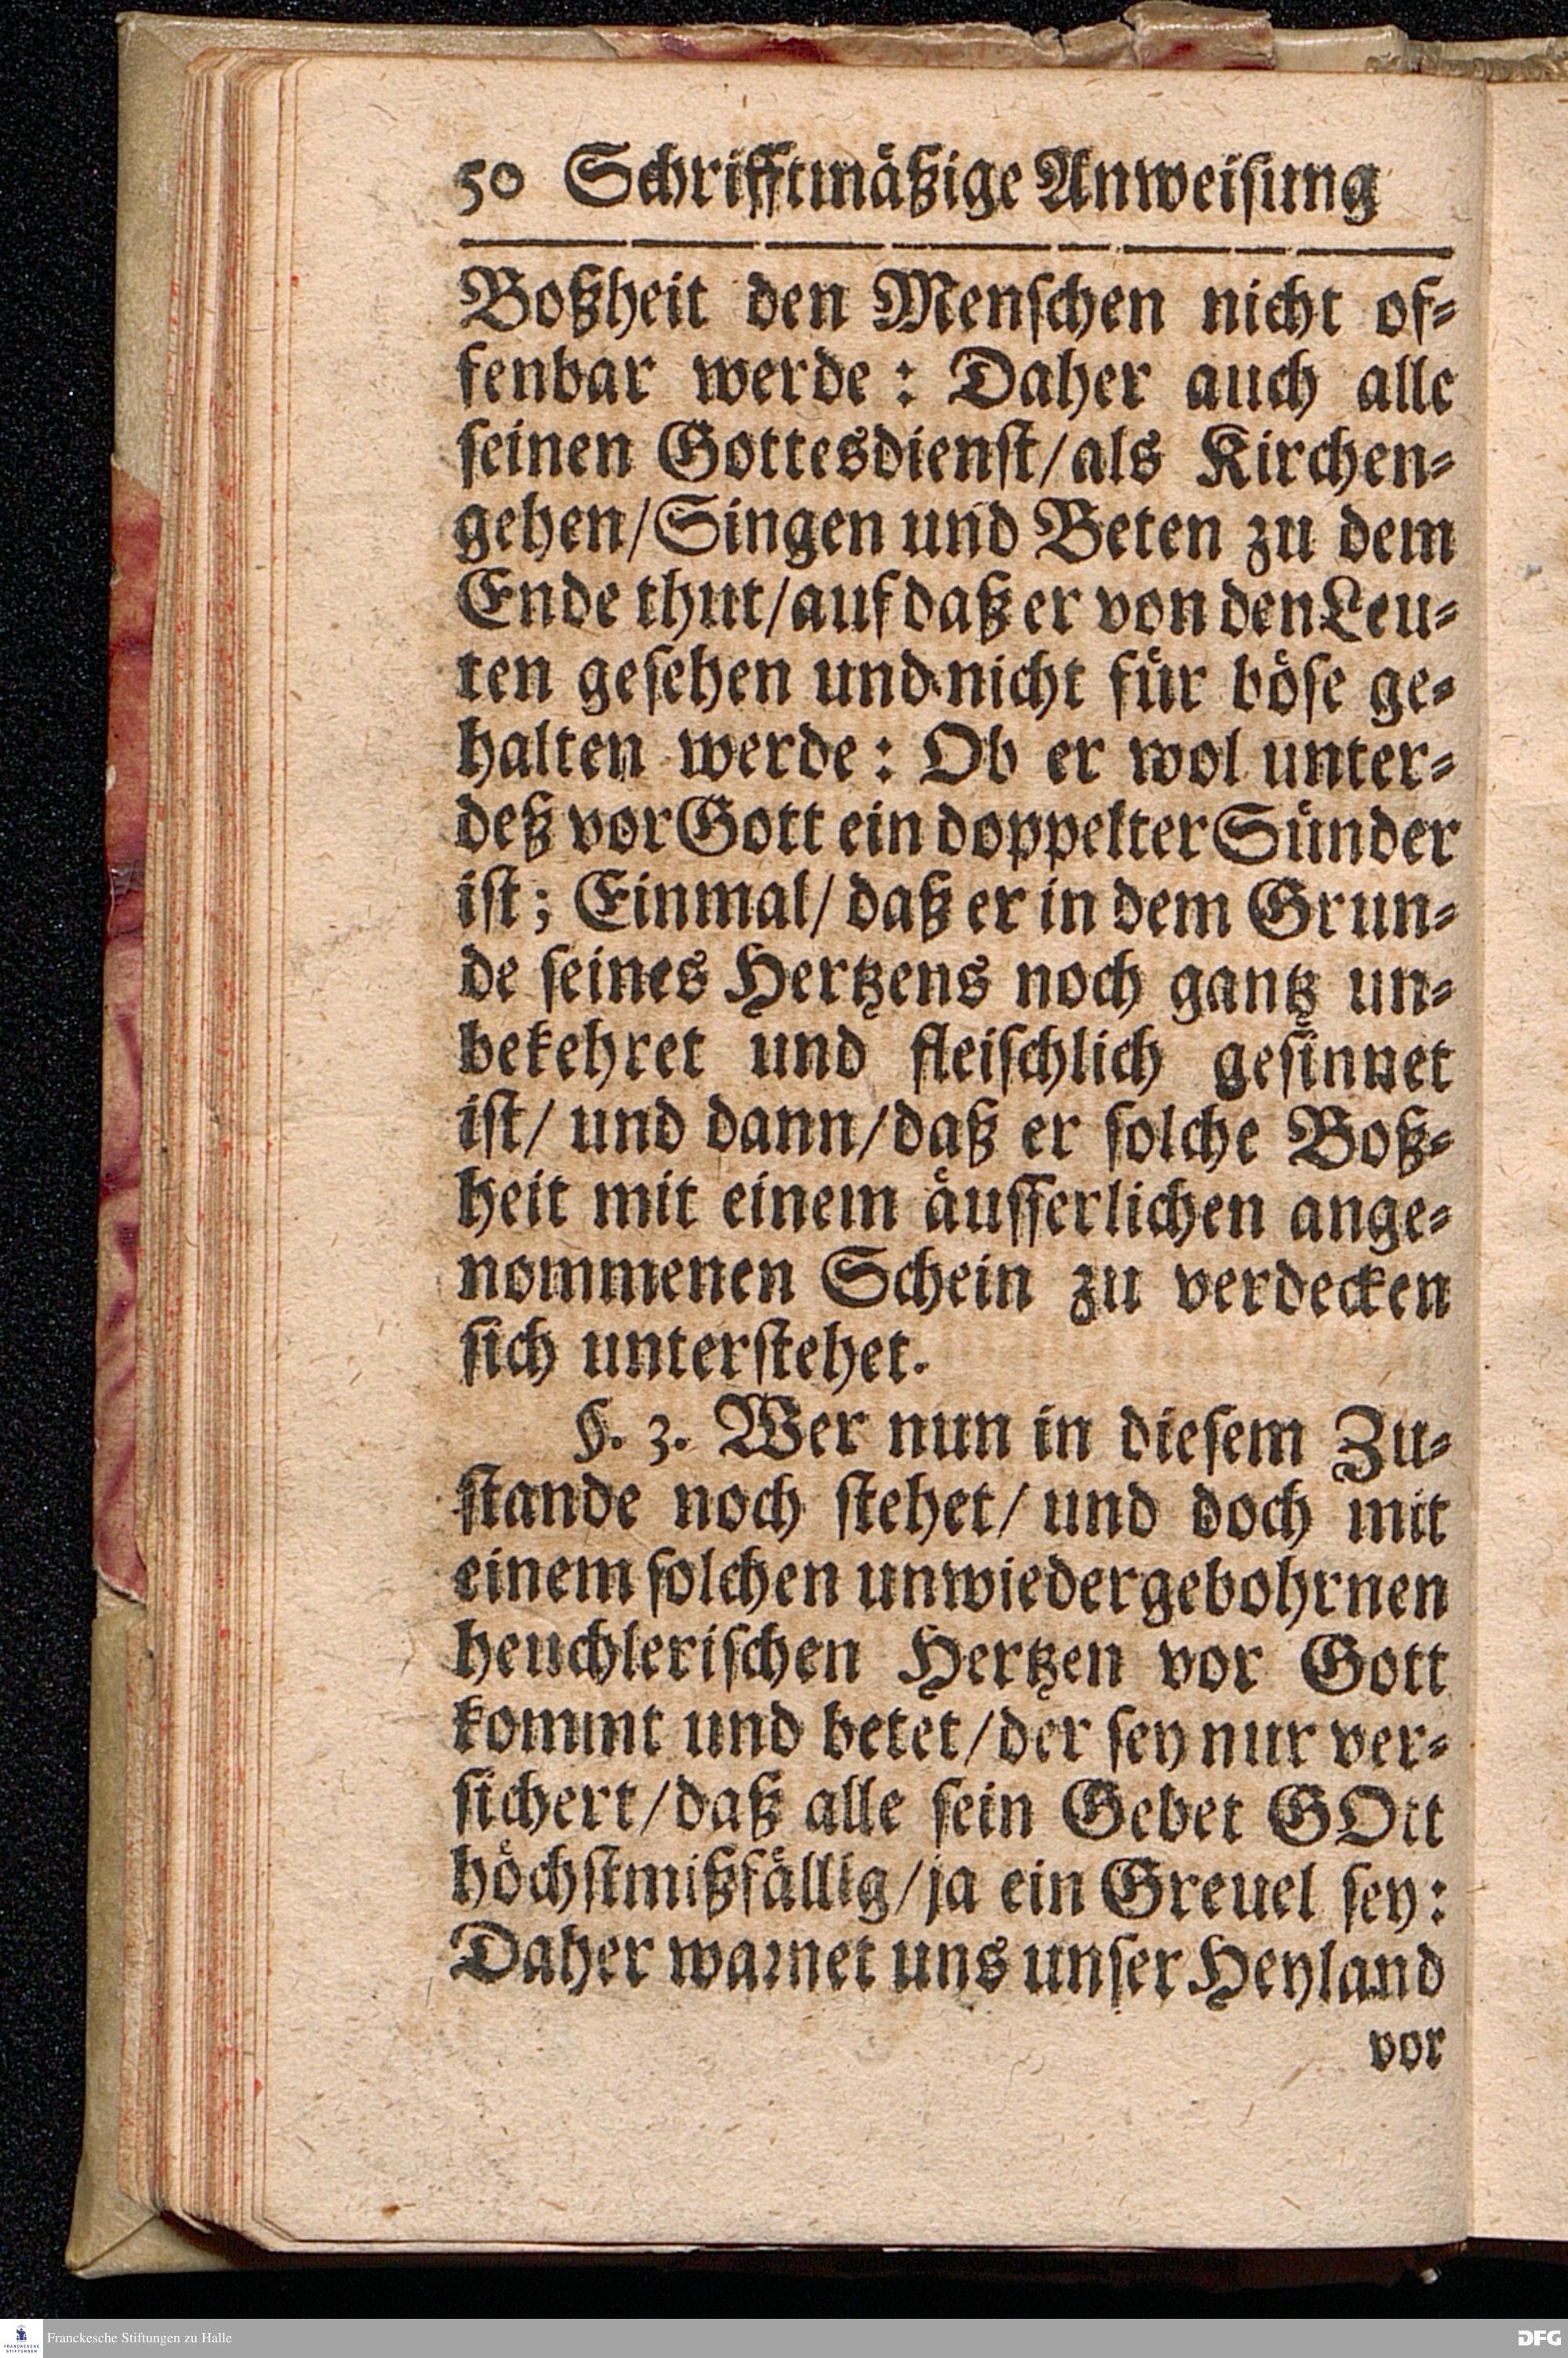 50 Schrifftmäßige Anweisung
Boßheit den Menschen nicht of-
fenbar werde: Daher auch alle
seinen Gottesdienst/als Kirchen-
gehen/Singen und Beten zu dem
Ende thut/auf daß er von den Leu-
ten gesehen und nicht für böse ge-
halten werde: Ob er wol unter-
deß vor Gott ein doppelter Sünder
ist; Einmal/ daß er in dem Grun-
de seines Hertzens noch gantz un-
bekehret und fleischlich gesinnet
ist/ und dann/daß er solche Boß-
heit mit einem äusserlichen ange-
nommenen Schein zu verdecken
sich unterstehet.
§. 3. Wer nun in diesem Zu-
stande noch stehet/ und doch mit
einem solchen unwiedergebohrnen
heuchlerischen Hertzen vor Gott
kommt und betet/der sey nur ver-
sichert/daß alle sein Gebet GOtt
höchstmißfällig/ja ein Greuel sey:
Daher warnet uns unser Heyland
vor
Franckesche Stiftungen zu Halle
DFG